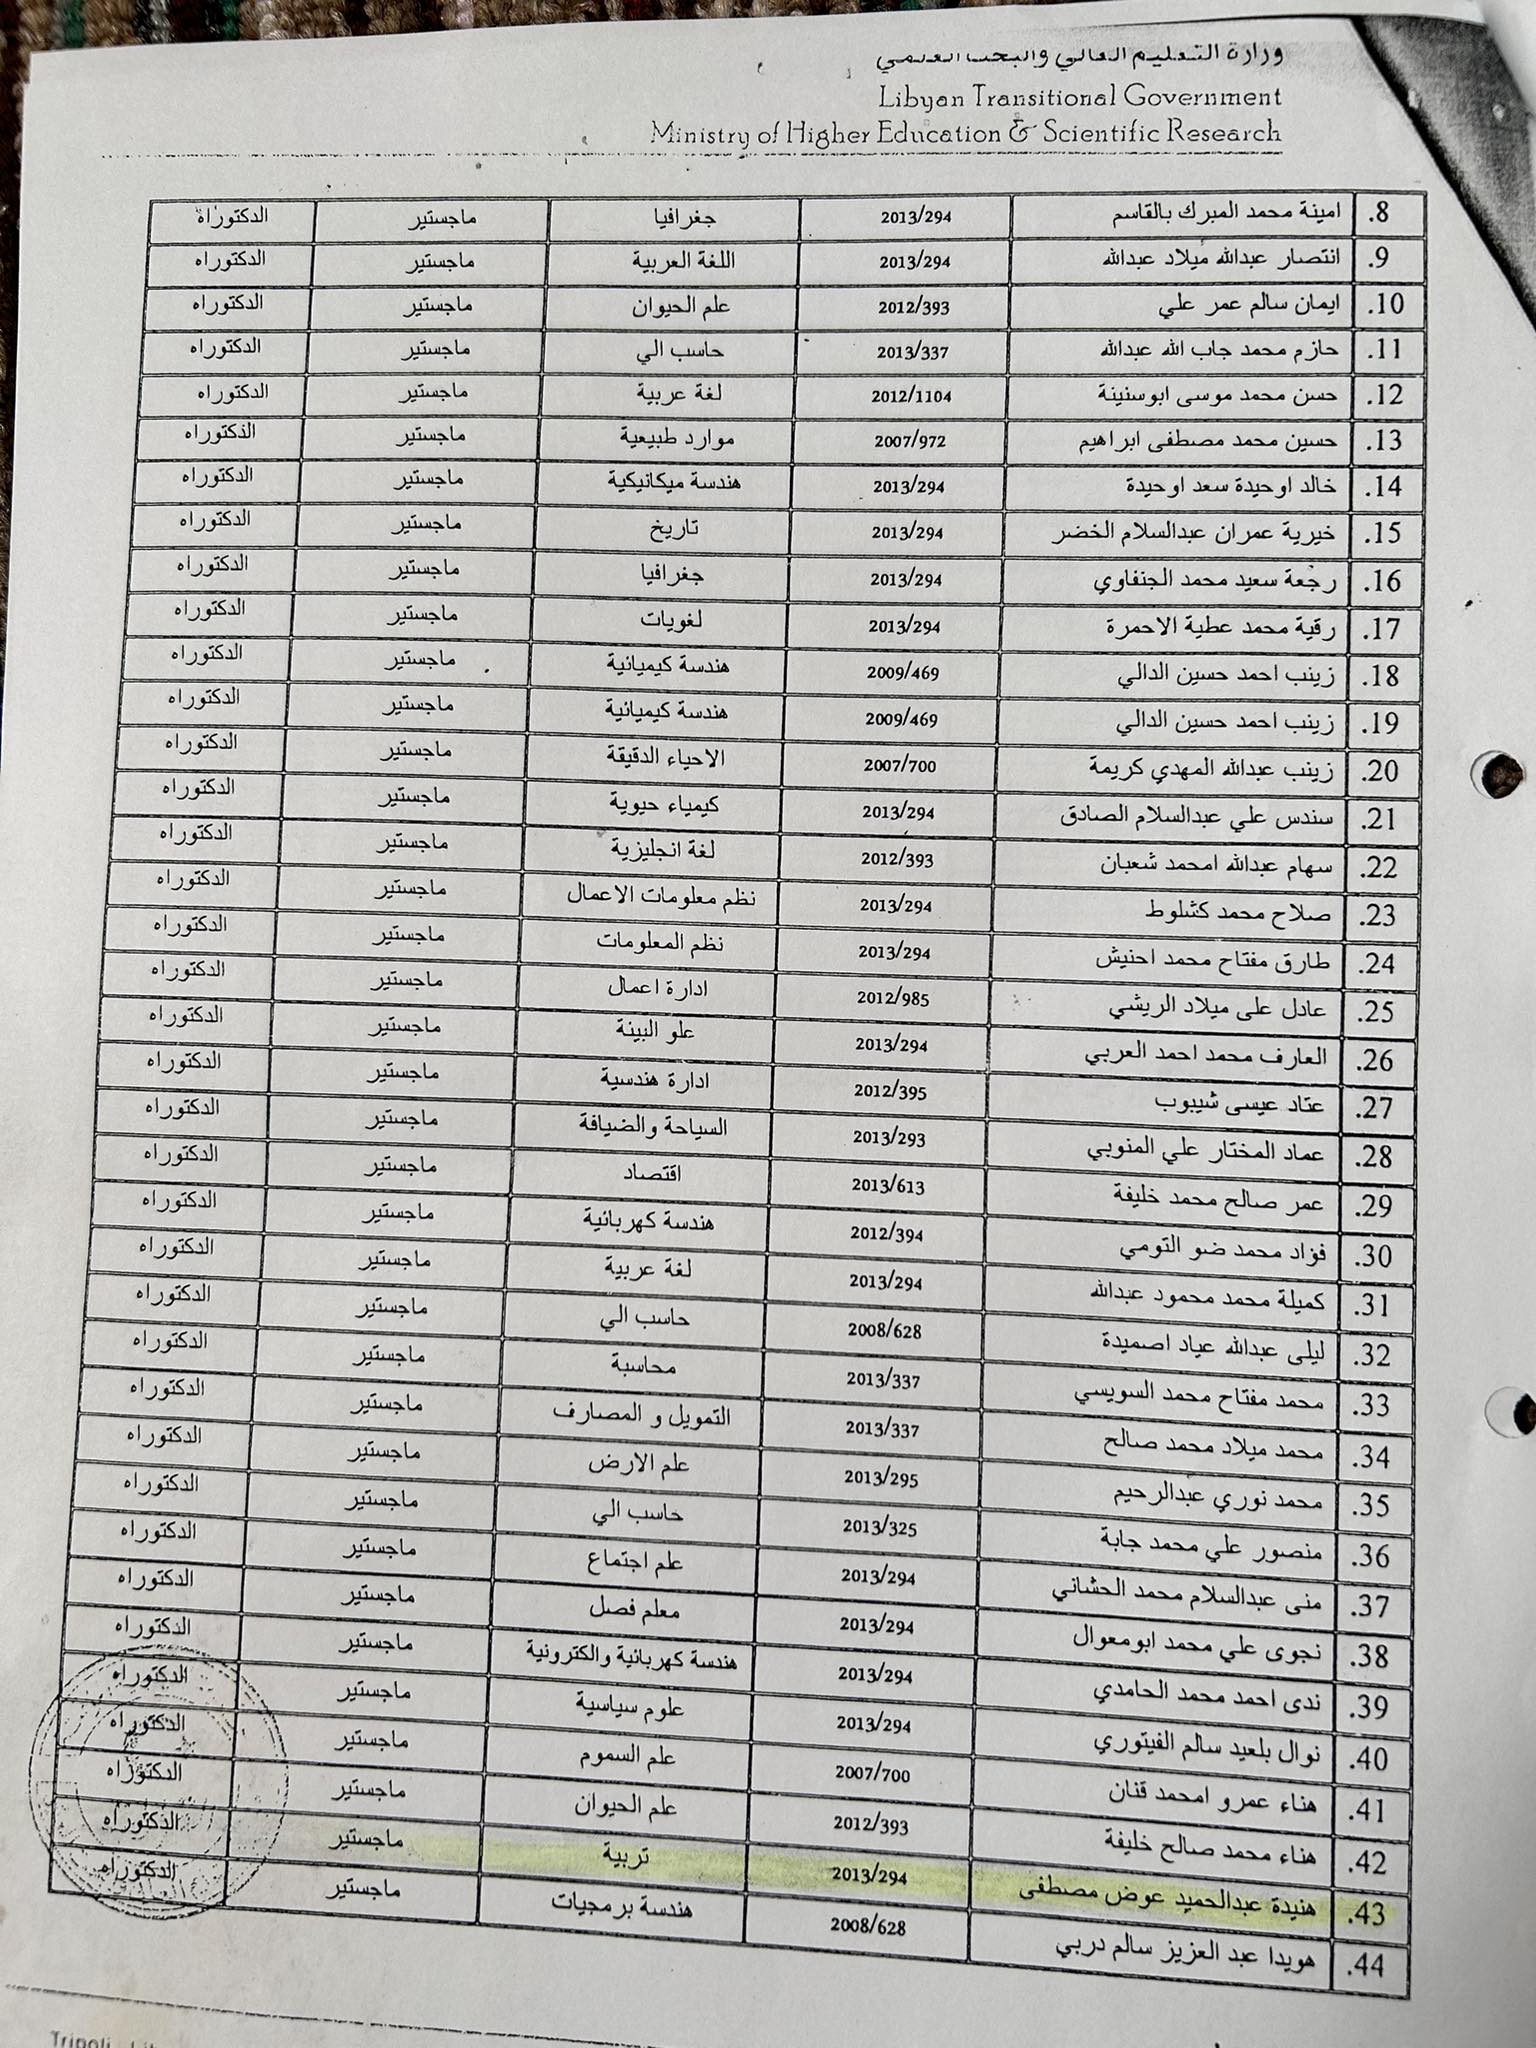 وزارة التعليم العالي والبحث العلمي
Libyan Transitional Government
Ministry of Higher Education & Scientific Research
8. امينة محمد المبرك بالقاسم 2013/294 جغرافيا ماجستير الدكتوراة
9. انتصار عبدالله ميلاد عبدالله 2013/294 اللغة العربية ماجستير الدكتوراه
10. ايمان سالم عمر علي 2012/393 علم الحيوان ماجستير الدكتوراه
11. حازم محمد جاب الله عبدالله 2013/337 حاسب الي ماجستير الدكتوراه
12. حسن محمد موسى ابوسنينة 2012/1104 لغة عربية ماجستير الدكتوراه
13. حسين محمد مصطفى ابراهيم 2007/972 موارد طبيعية ماجستير الدكتوراه
14. خالد اوحيدة سعد اوحيدة 2013/294 هندسة ميكانيكية ماجستير الدكتوراه
15. خيرية عمران عبدالسلام الخضر 2013/294 تاريخ ماجستير الدكتوراه
16. رجعة سعيد محمد الجنفاوي 2013/294 جغرافيا ماجستير الدكتوراه
17. رقية محمد عطية الاحمرة 2013/294 لغويات ماجستير الدكتوراه
18. زينب احمد حسين الدالي 2009/469 هندسة كيميائية ماجستير الدكتوراه
19. زينب احمد حسين الدالي 2009/469 هندسة كيميائية ماجستير الدكتوراه
20. زينب عبدالله المهدي كريمة 2007/700 الاحياء الدقيقة ماجستير الدكتوراه
21. سندس علي عبدالسلام الصادق 2013/294 كيمياء حيوية ماجستير الدكتوراه
22. سهام عبدالله امحمد شعبان 2012/393 لغة انجليزية ماجستير الدكتوراه
23. صلاح محمد كشلوط 2013/294 نظم معلومات الاعمال ماجستير الدكتوراه
24. طارق مفتاح محمد احنيش 2013/294 نظم المعلومات ماجستير الدكتوراه
25. عادل على ميلاد الريشي 2012/985 ادارة اعمال ماجستير الدكتوراه
26. العارف محمد احمد العربي 2013/294 علو البيئة ماجستير الدكتوراه
27. عتاد عيسى شيبوب 2012/395 ادارة هندسية ماجستير الدكتوراه
28. عماد المختار علي المنوبي 2013/293 السياحة والضيافة ماجستير الدكتوراه
29. عمر صالح محمد خليفة 2013/613 اقتصاد ماجستير الدكتوراه
30. فؤاد محمد ضو التومي 2012/394 هندسة كهربائية ماجستير الدكتوراه
31. كميلة محمد محمود عبدالله 2013/294 لغة عربية ماجستير الدكتوراه
32. ليلى عبدالله عياد اصميدة 2008/628 حاسب الي ماجستير الدكتوراه
33. محمد مفتاح محمد السويسي 2013/337 محاسبة ماجستير الدكتوراه
34. محمد ميلاد محمد صالح 2013/337 التمويل و المصارف ماجستير الدكتوراه
35. محمد نوري عبدالرحيم 2013/295 علم الارض ماجستير الدكتوراه
36. منصور علي محمد جابة 2013/325 حاسب الي ماجستير الدكتوراه
37. منى عبدالسلام محمد الحشاني 2013/294 علم اجتماع ماجستير الدكتوراه
38. نجوى علي محمد ابومعوال 2013/294 معلم فصل ماجستير الدكتوراه
39. ندى احمد محمد الحامدي 2013/294 هندسة كهربائية والكترونية ماجستير الدكتوراه
40. نوال بلعيد سالم الفيتوري 2013/294 علوم سياسية ماجستير الدكتوراه
41. هناء عمرو امحمد قنان 2007/700 علم السموم ماجستير الدكتوراه
42. هناء محمد صالح خليفة 2012/393 علم الحيوان ماجستير الدكتوراه
43. هنيدة عبدالحميد عوض مصطفى 2013/294 تربية ماجستير الدكتوراه
44. هويدا عبد العزيز سالم دربي 2008/628 هندسة برمجيات ماجستير الدكتوراه
Tripoli